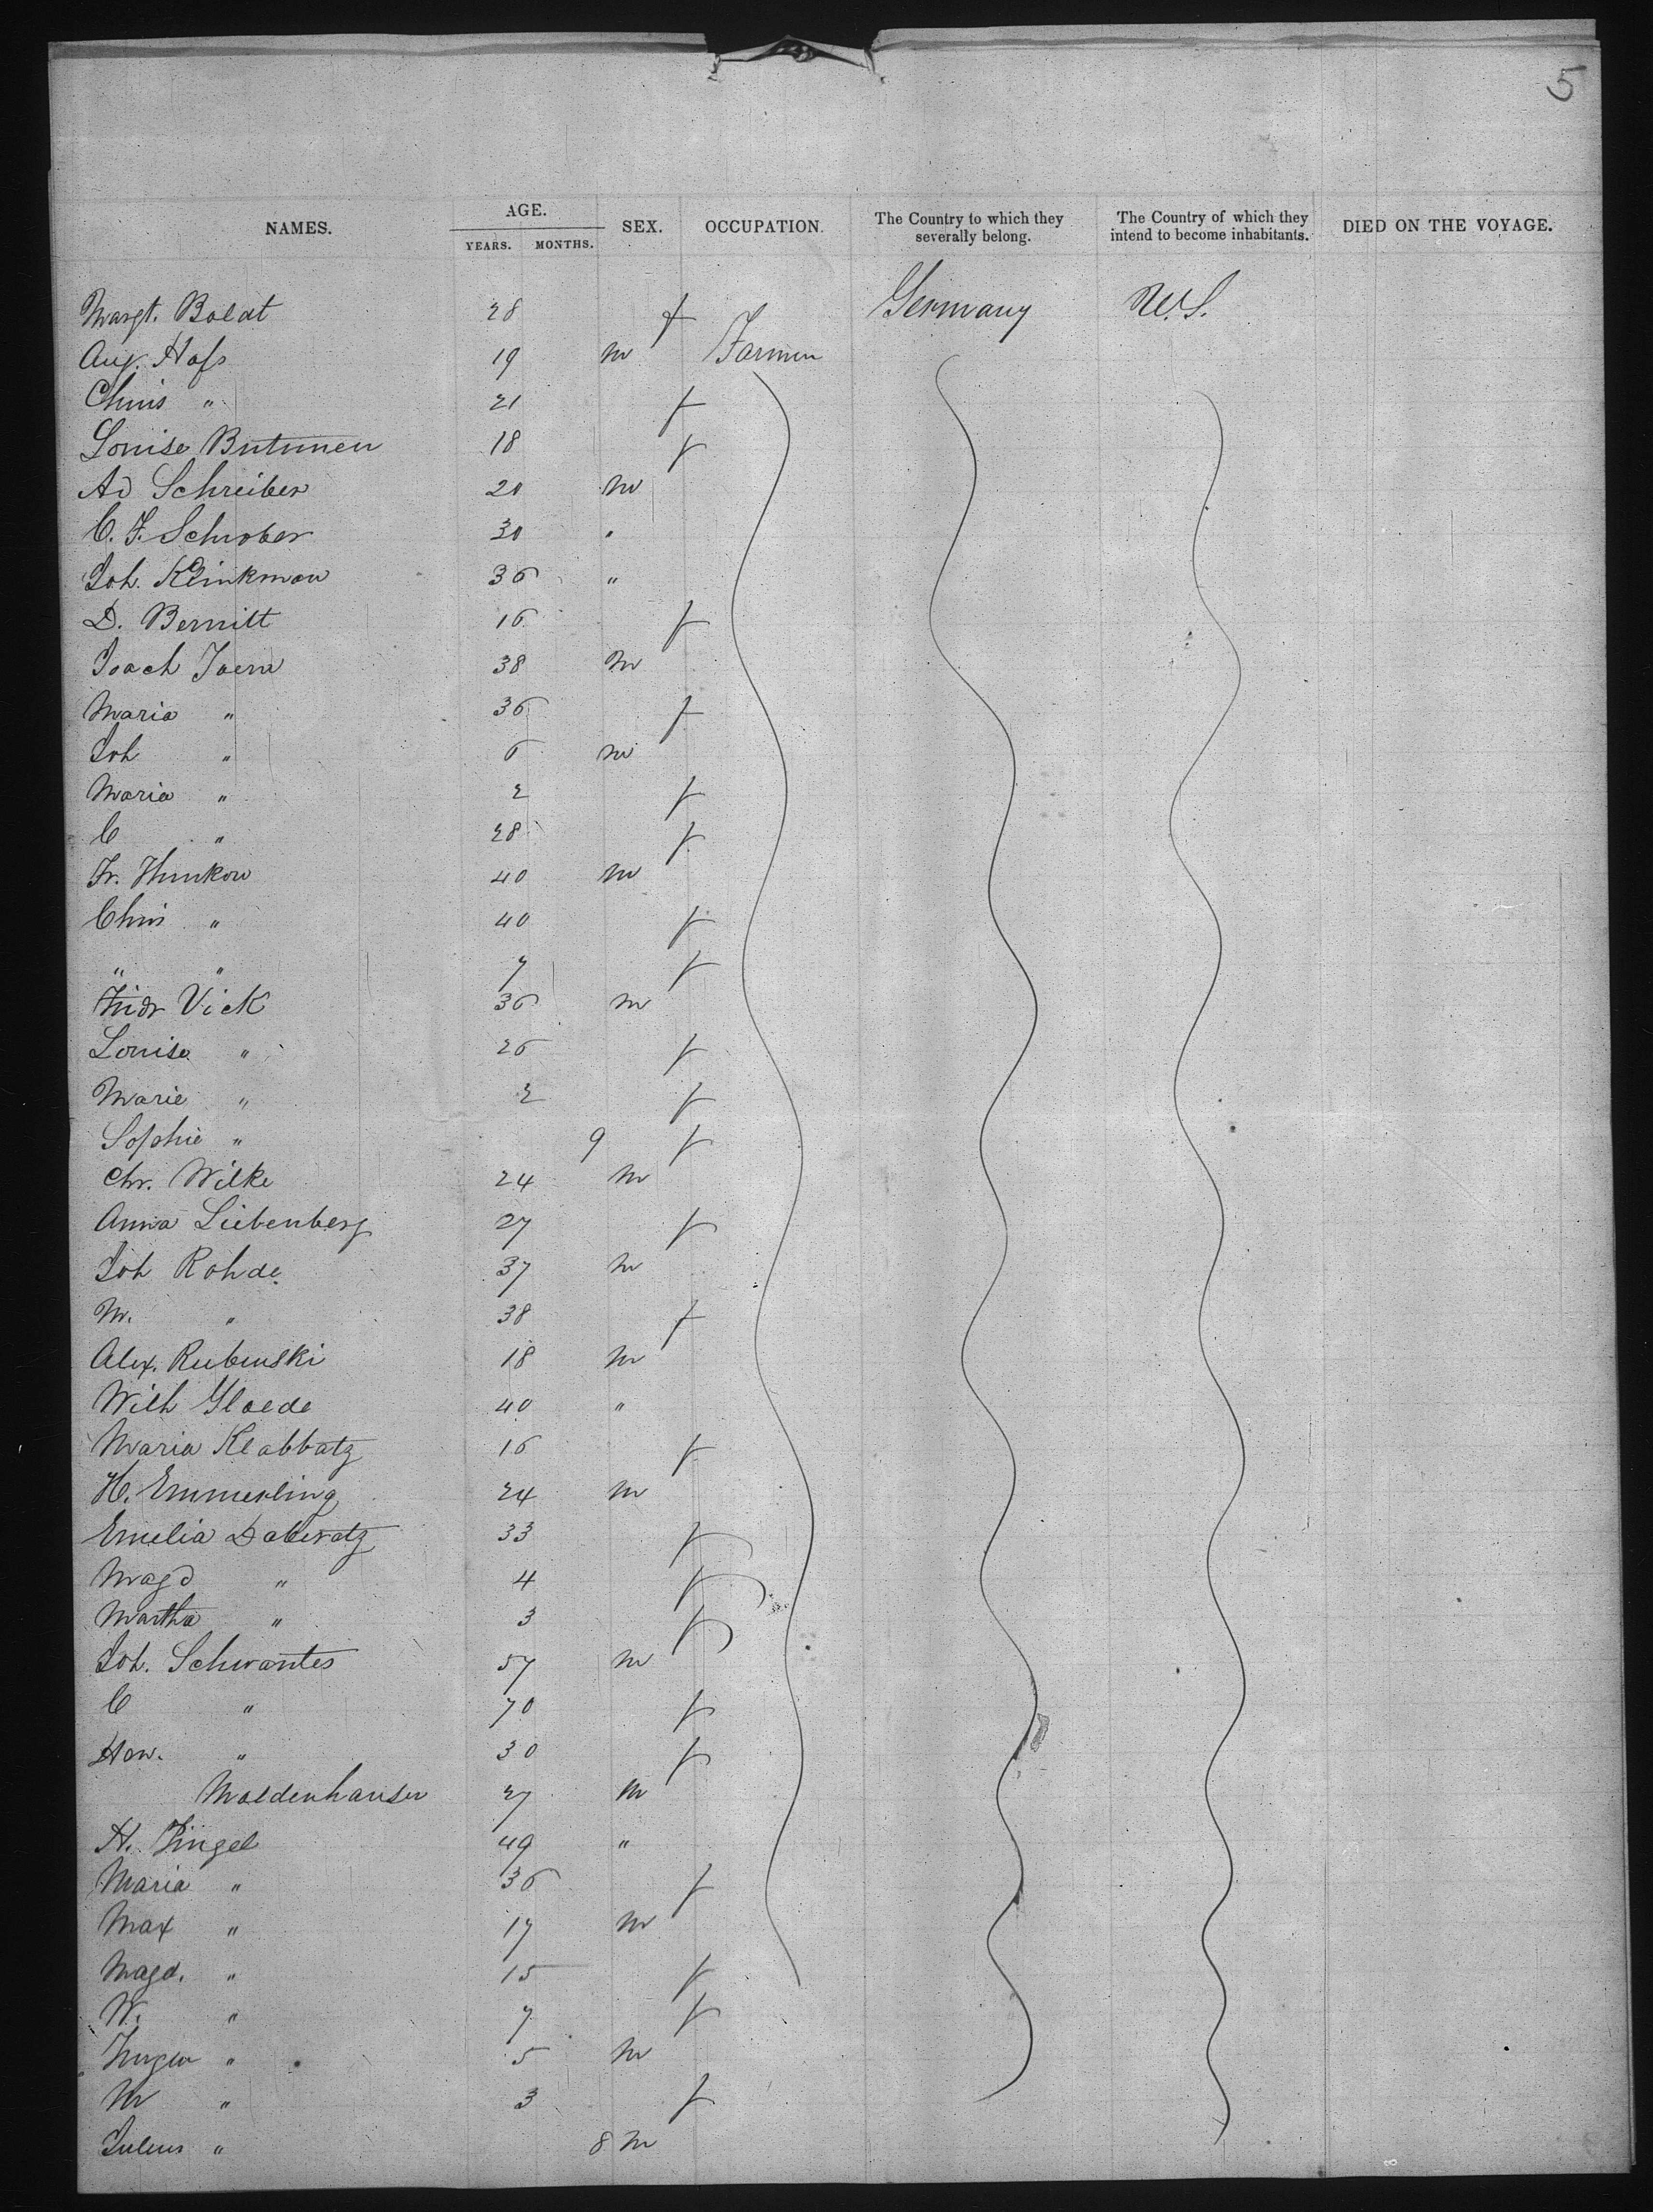 5
NAMES. AGE. YEARS. MONTHS. SEX. OCCUPATION. The Country to which they severally belong. The Country of which they intend to become inhabitants. DIED ON THE VOYAGE.
Margt. Boldt 28 f Germany U.S.
Aug. Hafs 19 m Farmer
Chris " 21 f
Louise 18 f
Ad Schreiber 20 m
C. F. Schrober 30 "
Joh. Klinkman 36 "
D. Bernitt 16 f
Joach 38 m
Maria " 36 f
Joh " 6 m
Maria " 2 f
C " 28 f
Fr. 40 m
Chris " 40 f
" " 7 f
Fridr Vick 36 m
Louise " 26 f
Marie " 2 f
Sophie " 9 f
Chr. Wilke 24 m
Anna Liebenberg 27 f
Joh Rohde 37 m
M. " 38 f
Alex. Rubinski 18 m
Wilh Gloede 40 "
Maria Klabbatz 16 f
H. Emmerling 24 m
Emelia Daberatz 33 f
Magd " 4 f
Martha " 3 f
Joh. Schwantes 57 m
C " 70 f
Han. " 30 f
Moldenhauser 27 m
H. Zingel 49 "
Maria " 36 f
Max " 17 m
Magd. " 15 f
W. " 7 f
" 5 m
M " 3 f
Julius " 8 m